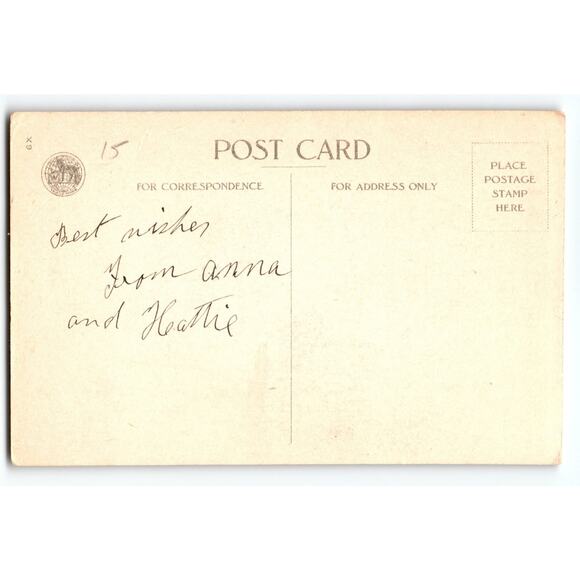 6X
15
POST CARD
FOR CORRESPONDENCE
FOR ADDRESS ONLY
PLACE
POSTAGE
STAMP
HERE
Best wishes
From Anna
and Hattie